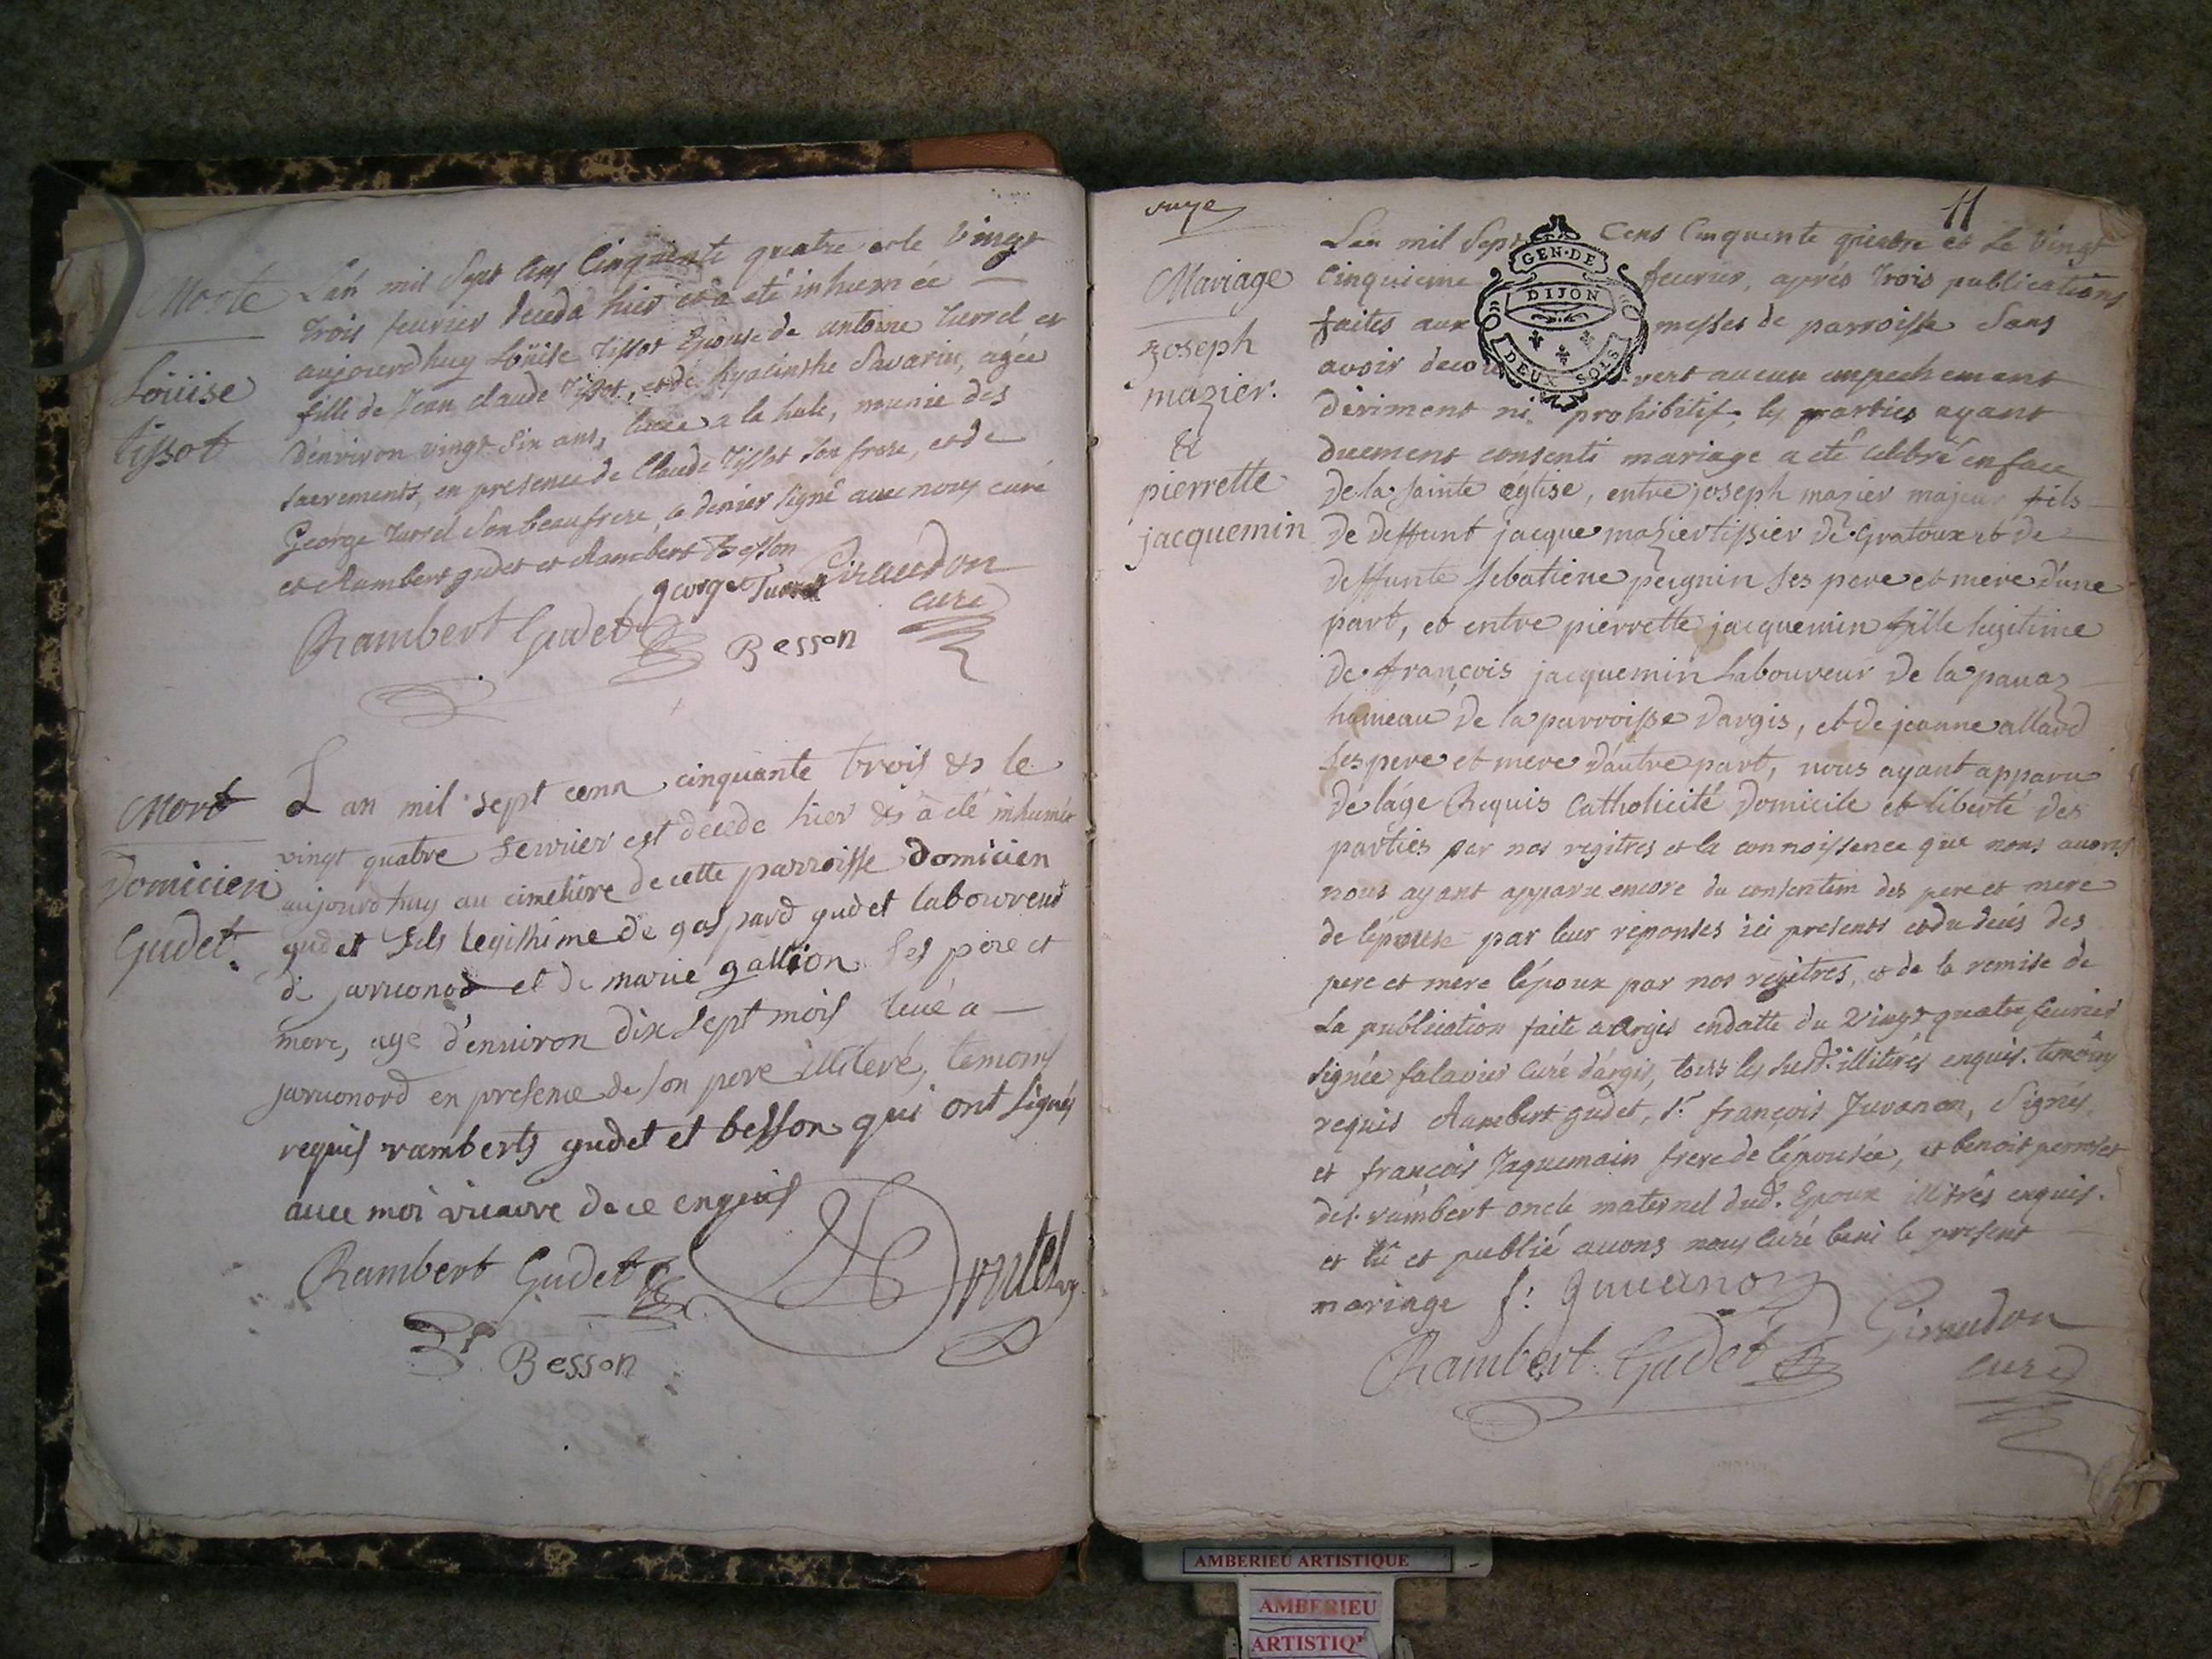 Morte
Loüise
tissot
L'an mil Sept Cens Cinquante quatre et le Vingt
trois feurier deceda hier et a eté inhumée
aujourdhuy Loüise Tissot Epouse de antoine Turrel et
fille de Jean claude Tissot, et de hyacinthe Savarin, agée
d'environ vingt Six ans, levée a la hale, munie des
Sacrements, en presence de Claude Tissot Son frere, et de
George Turrel Son beaufrere, ce denier Signé avec nous curé
et Rambert gudet et Rambert Besson
george Turrel Giraudon
curé
Rambert Gudet
Besson
Mort
Domicien
Gudet.
L an mil sept cenn cinquante trois & le
vingt quatre feurier est decede hier & a eté inhumér
aujourdhuy au cimetiere de cette parroisse domicien
gudet fils legithime de gaspard gudet laboureur
de jaruonod et de marie gallion ses pere et
mere, age d'enuiron dix sept mois leué a
jaruonord en presence de son pere illiteré, temoins
requis ramberts gudet et besson qui ont signés
auec moi vicaire de ce enquis
Rambert Gudet
Besson
suye
11
Mariage
Joseph
mazier.
&
pierrette
jacquemin
GEN·DE
DIJON
DEUX SOLS
L'an mil Sept Cens Cinquente quatre et Le Vingt
Cinquieme feurier, aprés Trois publications
faites aux messes de parroisse Sans
avoir decouvert aucun empechement
deriment ni prohibitif, les parties ayant
duement consenti mariage a eté celebré en face
de la sainte eglise, entre joseph mazier majeur fils
de deffunt jacque mazier tissier de Gratoux et de
deffunte sebatiene peignin ses pere et mere d'une
part, et entre pierrette jacquemin fille legitime
de françois jacquemin Laboureur de la pauaz
hameau de la parroisse dargis, et de jeanne allard
ses pere et mere d'autre part, nous ayant apparu
de láge Requis Catholicité Domicile et liberté des
parties par nos regitres et la connoissence que nous auons
nous ayant apparu encore du consentem des pere et mere
de lépouse par leur reponses ici presents et du decés des
pere et mere lépoux par nos regitres, et de la remise de
La publication faite a Argis endatte du Vingt quatre feurier
Signée falavier Curé d'argis, tous les susd. illiterés enquis. temoins
requis Rambert gudet, sr. françois Juvanon, Signés.
et françois Jaquemain frere de lépousée, et benoit perroset
de s. rambert oncle maternel dud. Epoux illitrés enquis.
et lû et publié auons nous Curé beni le present
mariage f: Guuanon
Rambert Gudet
Giraudon
curé
AMBERIEU ARTISTIQUE
AMBERIEU
ARTISTIQ